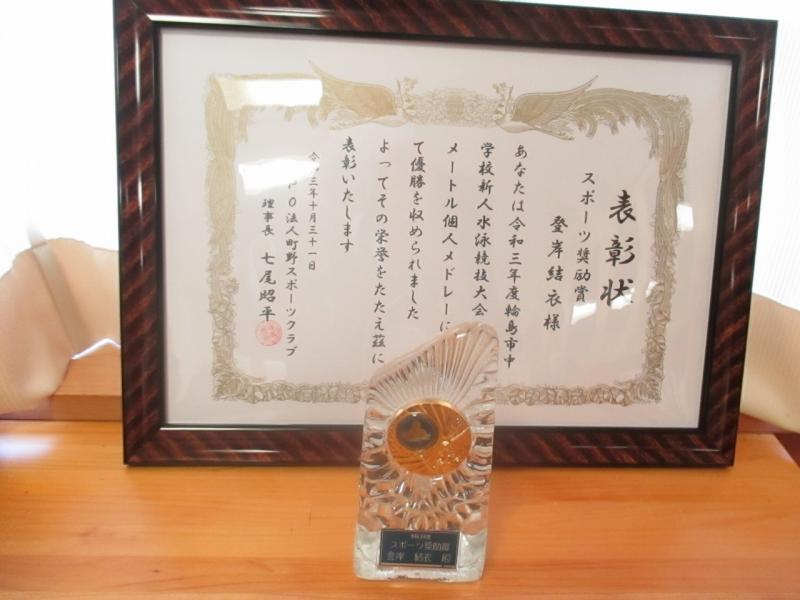 表彰状
スポーツ奨励賞
登岸結衣様
あなたは令和三年度輪島市中
学校新人水泳競技大会
メートル個人メドレーに
て優勝を収められました
よってその栄誉をたたえ茲に
表彰いたします
令和三年十月三十一日
法人町野スポーツクラブ
理事長 七尾昭平
スポーツ奨励賞
登岸 結衣 殿